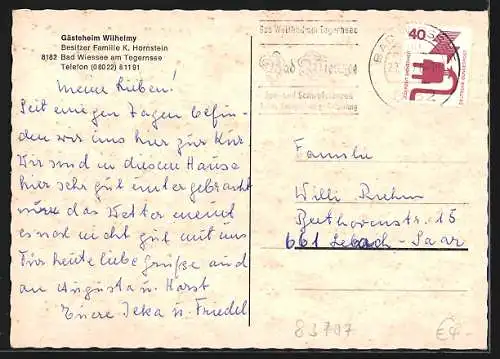 Gästeheim Wilhelmy
Besitzer Familie K. Hornstein
8182 Bad Wiessee am Tegernsee
Telefon (08022) 81191
Meine Lieben!
Seit einigen Tagen befin-
den wir uns hier zur Kur.
Wir sind in diesem Hause
hier sehr gut untergebracht
das Wetter meint
es noch nicht gut mit uns
Für heute liebe Grüße auch
an Augusta u. Horst
Eure Inka u. Friedel
Das Weltbad am Tegernsee
Bad Wiessee
BAD
40
DEUTSCHE BUNDESPOST
Familie
Willi Ruhm
Beethovenstr. 15
661 Lebach-Saar
83797
€4.-